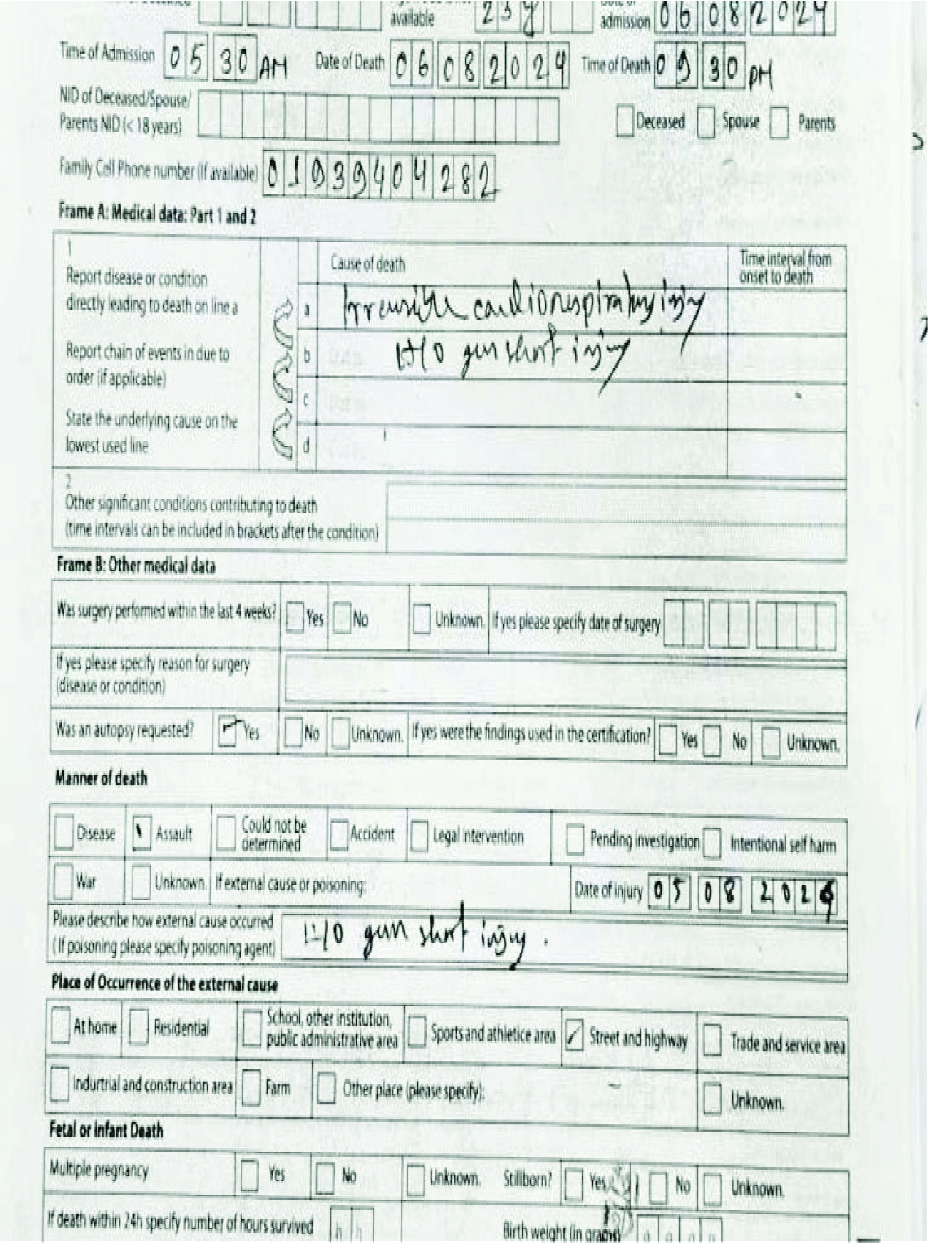 available 23y admission 06 08 2024
Time of Admission 05 30 AM Date of Death 06 08 2024 Time of Death 09 30 PM
NID of Deceased/Spouse/
Parents NID (< 18 years) Deceased Spouse Parents
Family Cell Phone number (If available)
Frame A: Medical data: Part 1 and 2
1
Report disease or condition
directly leading to death on line a
Report chain of events in due to
order (if applicable)
State the underlying cause on the
lowest used line
Cause of death
Time interval from
onset to death
a cardiorespiratory injury
b H/O gun short injury
c
d
2
Other significant conditions contributing to death
(time intervals can be included in brackets after the condition)
Frame B: Other medical data
Was surgery performed within the last 4 weeks? Yes No Unknown. If yes please specify date of surgery
If yes please specify reason for surgery
(disease or condition)
Was an autopsy requested? Yes No Unknown. If yes were the findings used in the certification? Yes No Unknown.
Manner of death
Disease Assault Could not be determined Accident Legal intervention Pending investigation Intentional self harm
War Unknown. If external cause or poisoning: Date of injury 05 08 2024
Please describe how external cause occurred
(If poisoning please specify poisoning agent) H/O gun short injury.
Place of Occurrence of the external cause
At home Residential School, other institution, public administrative area Sports and athletice area Street and highway Trade and service area
Indurtrial and construction area Farm Other place (please specify): Unknown.
Fetal or infant Death
Multiple pregnancy Yes No Unknown. Stillborn? Yes No Unknown.
If death within 24h specify number of hours survived h h Birth weight (in grams) g g g g